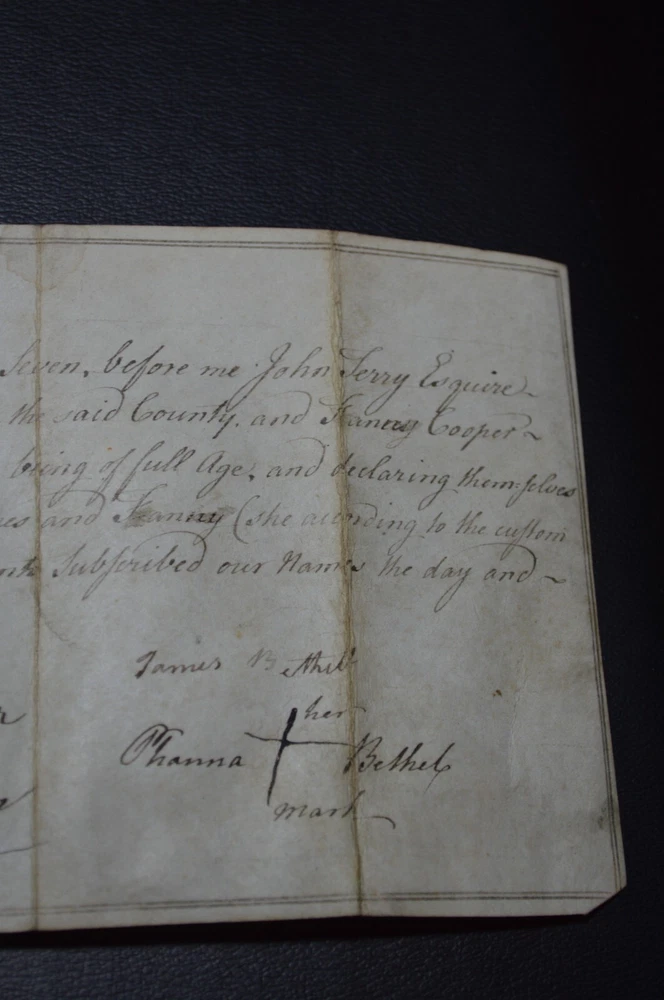 Seven, before me John Terry Esquire
the said County, and Hanny Cooper
being of full Age, and declaring themselves
and Hanny (she according to the custom
Subscribed our Names the day and
James Bethel
her
Phanna Bethel
mark